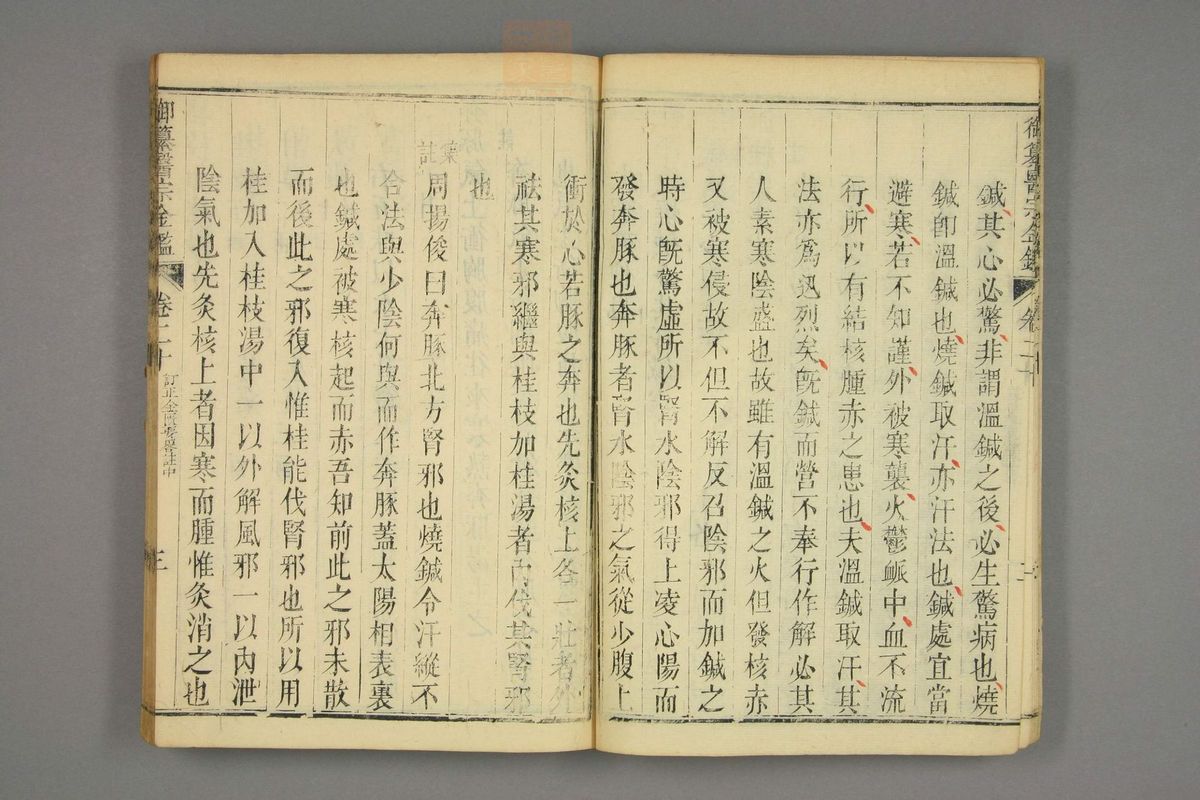 御纂醫宗金鑑
卷二十
鍼其心必驚非謂溫鍼之後必生驚病也燒
鍼卽溫鍼也燒鍼取汗亦汗法也鍼處宜當
避寒若不知謹外被寒襲火鬱脈中血不流
行所以有結核腫赤之患也夫溫鍼取汗其
法亦爲迅烈矣旣鍼而營不奉行作解必其
人素寒陰盛也故雖有溫鍼之火但發核赤
又被寒侵故不但不解反召陰邪而加鍼之
時心旣驚虛所以腎水陰邪得上凌心陽而
發奔豚也奔豚者腎水陰邪之氣從少腹上
衝於心若豚之奔也先灸核上各一壯者外
祛其寒邪繼與桂枝加桂湯者內伐其腎邪
也
集註
周揚俊曰奔豚北方腎邪也燒鍼令汗縱不
合法與少陰何與而作奔豚蓋太陽相表裏
也鍼處被寒核起而赤吾知前此之邪未散
而後此之邪復入惟桂能伐腎邪也所以用
桂加入桂枝湯中一以外解風邪一以內泄
陰氣也先灸核上者因寒而腫惟灸消之也
御纂醫宗金鑑
卷二十
訂正金匱要畧註中
三